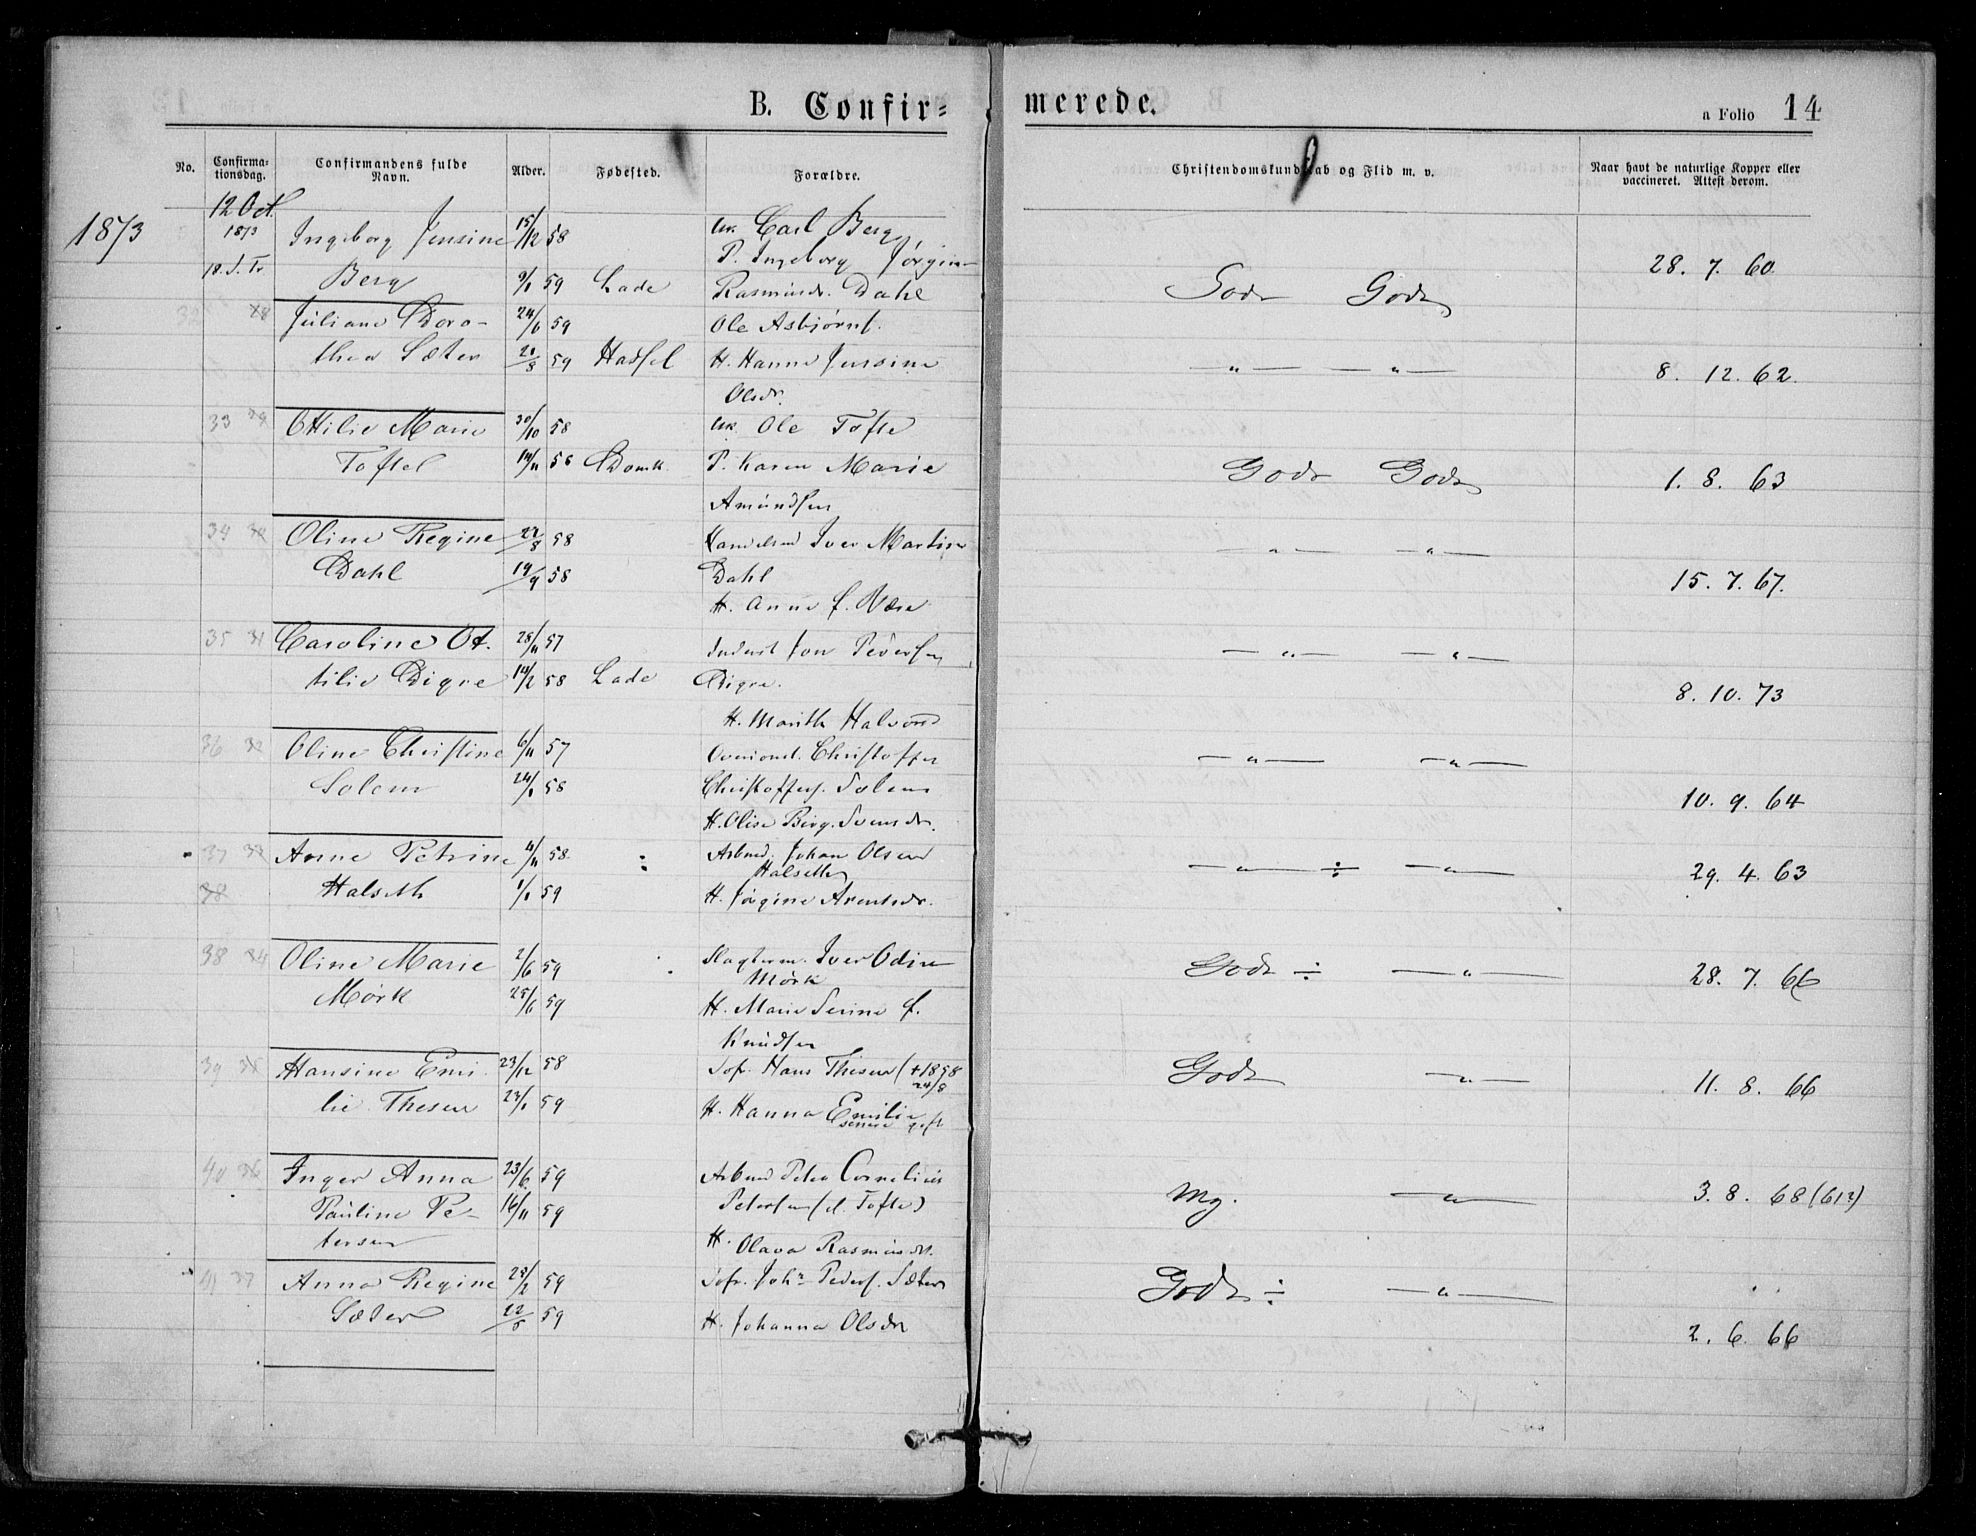 B. Confir=
merede.
a Folio 14
No.
Confirma-
tionsdag.
Confirmandens fulde
Navn.
Alder.
Fødested.
Forældre.
Christendomskundskab og Flid m. v.
Naar havt de naturlige Kopper eller
vaccineret. Attest derom.
1873
12 Oct.
1873
18. S. Tr
Ingeborg Jensine 15/12 58 Carl Berg
P. Ingeborg Jørgine
Berg 9/1 59 Lade Rasmusdr. Dahl
Godt Godt 28. 7. 60
Juliane Doro- 24/6 59 Ole Asbjørns.
thea Sæter 21/8 59 Hassel H. Hanne Jensine
Olsdr.
— " — — " — 8. 12. 62.
33 Ottilie Marie 30/10 58 Ole Tofte
Toftel 14/11 58 Domk. P. Karen Marie
Amundsen
Godt Godt 1. 8. 63
34 Oline Regine 27/8 58 Handelsmd Iver Martin
Dahl 19/9 58 Dahl
H. Anne f. Næss
— " — — " — 15. 7. 67.
35 Caroline Ot- 28/11 57 Jon Pedersen
tilie Digre 14/2 58 Lade Digre.
H. Marith Halvorsd
— " — — " — 8. 10. 73
36 Oline Christine 6/11 57 Christoffer
Solem 24/1 58 Christoffers. Solem
H. Olise Berg. Svensdr.
— " — — " — 10. 9. 64
37 Anne Petrine 4/11 58 Arbmd. Johan Olsen
Halseth
Halseth 1/1 59 H. Jørgine Arentsdr.
— " — ÷ — " — 29. 4. 63
38 Oline Marie 2/6 59 Slagterm. Iver Odin
Mørk
Mørk 25/6 59 H. Marie Serine f.
Knudsen
Godt ÷ — " — 28. 7. 66
39 Hansine Emi- 23/12 58 Hans Thesen (+1858
24/8
lie Thesen 23/1 59 H. Hanna Emilie
gift
Godt — " — 11. 8. 66
40 36 Inger Anna 23/6 59 Arbmd Peter Cornelius
Pauline Pe- 16/11 59 Petersen (d. Tofte)
tersen H. Olava Rasmusdt.
Mg. — " — 3. 8. 68 (612)
41 37 Anna Regine 25/2 59 Joh: Peders. Sæter
Sæter 22/5 59 H. Johanna Olsdr
Godt ÷ — " — 2. 6. 66